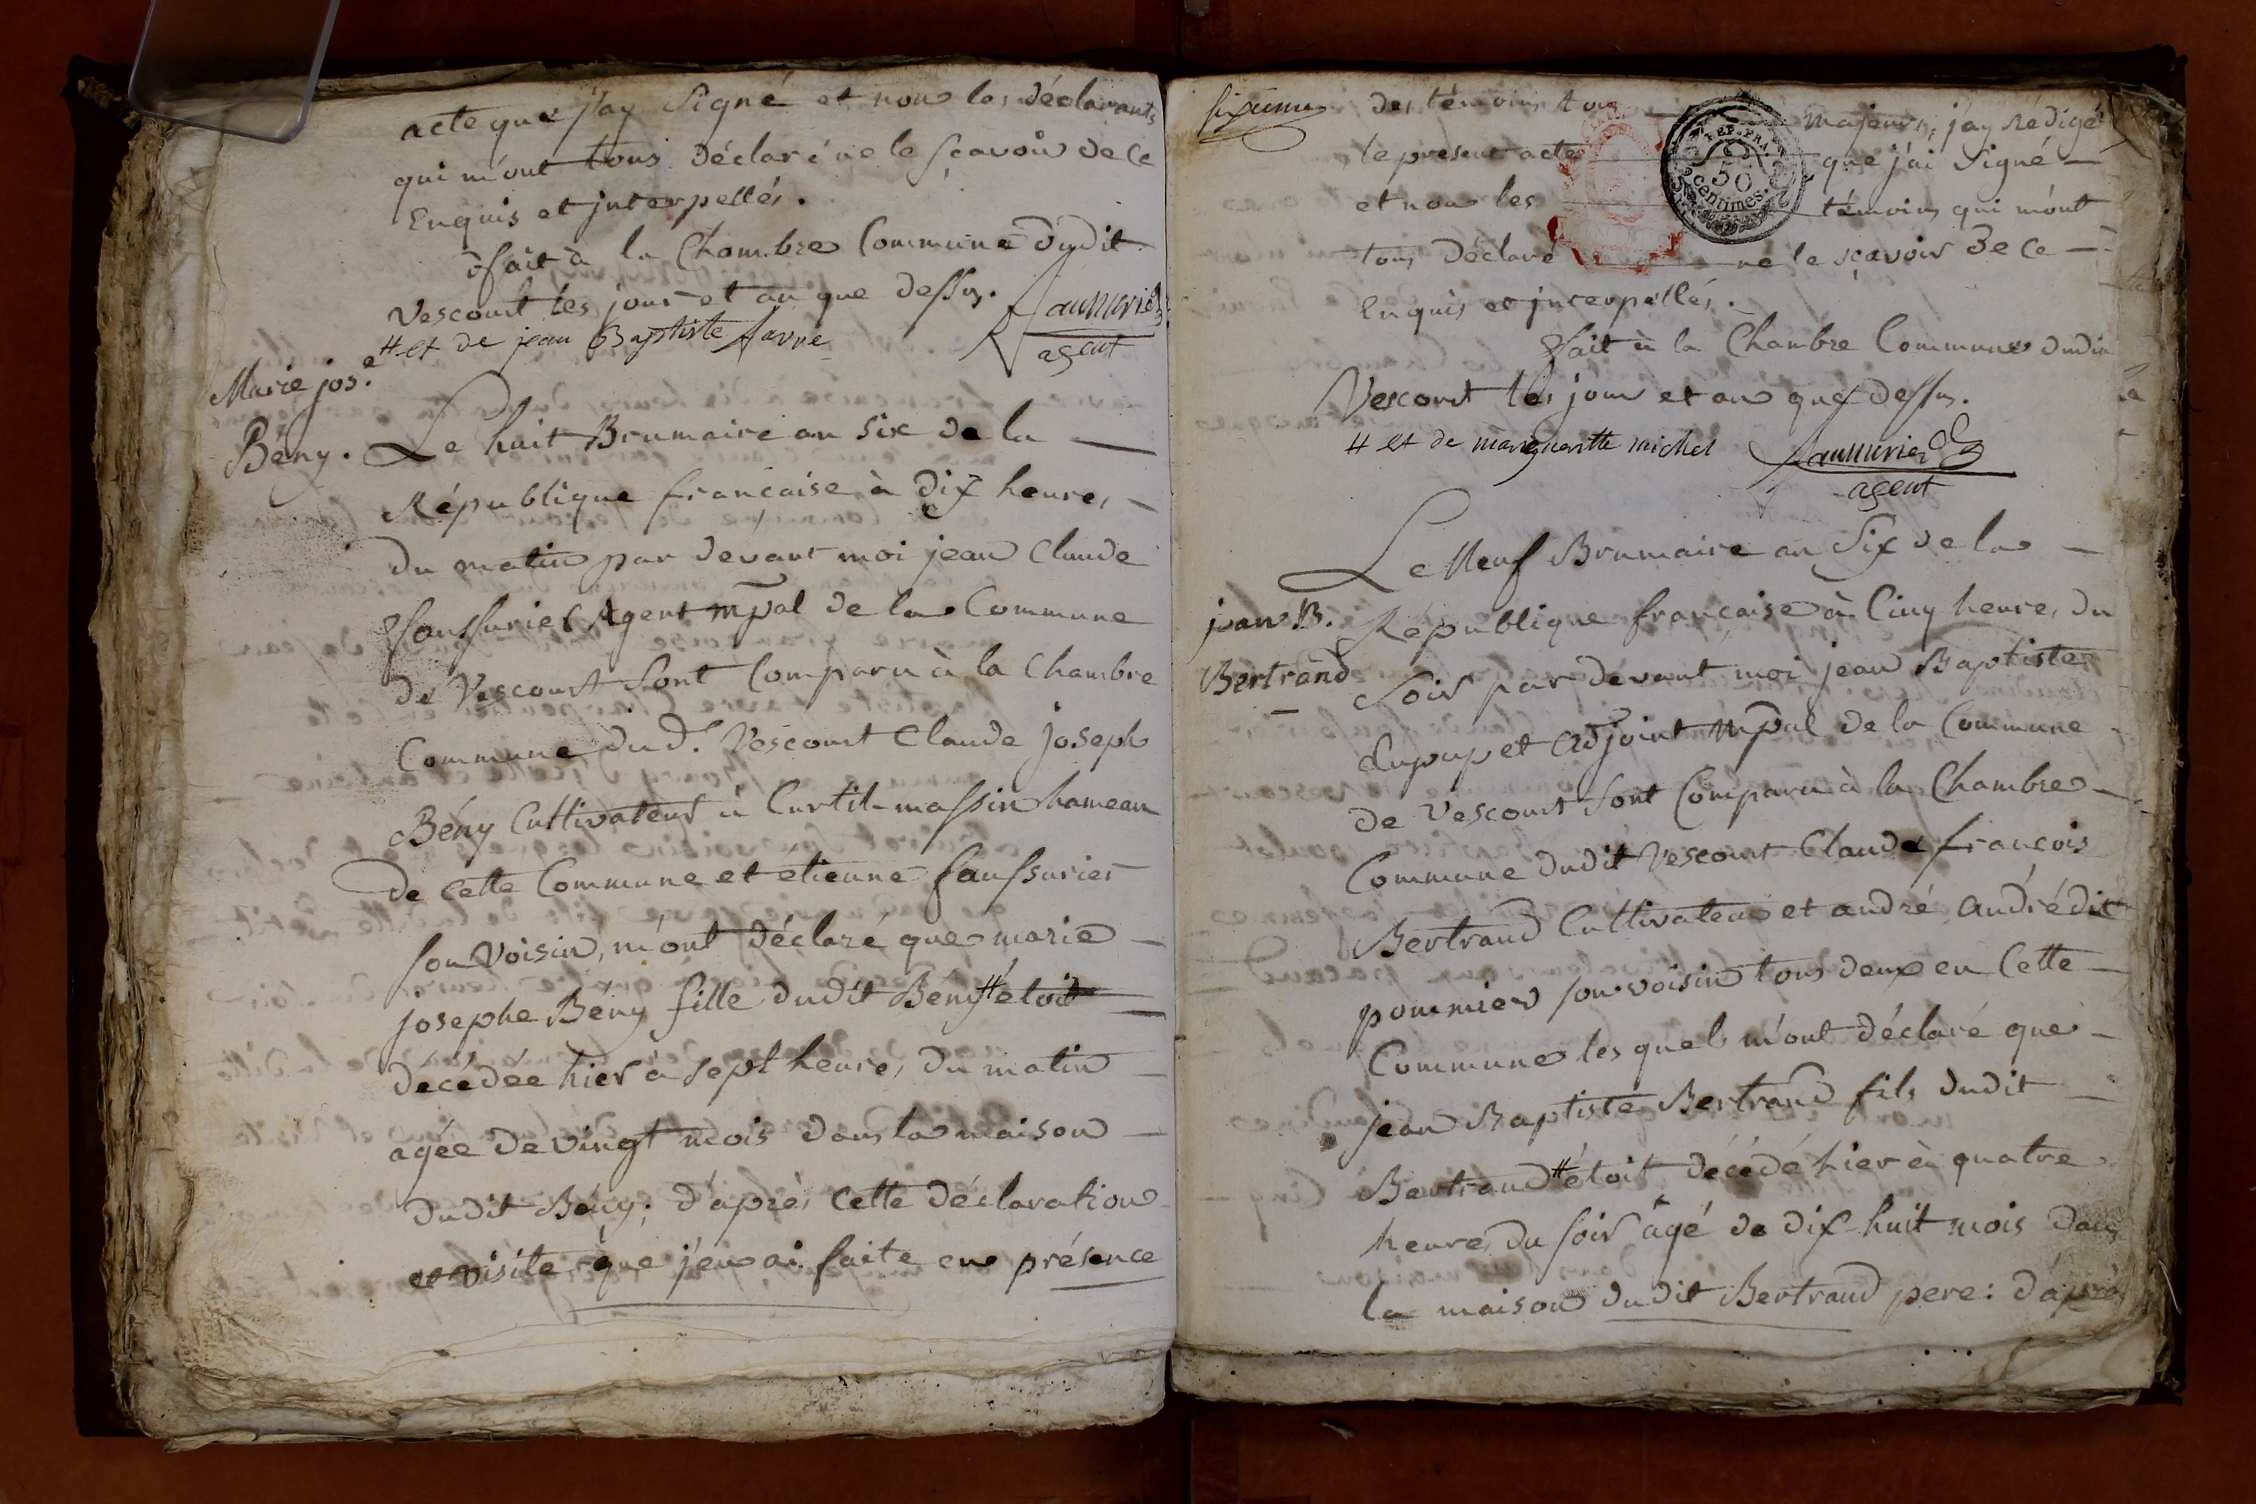 acte que j'ay signé et non les déclarants
qui m'ont tous déclaré ne le sçavoir de ce
Enquis et interpellés.
fait à la Chambre Commune dudit
Vescourt les jour et an que dessus.
# et de jean Baptiste favre
agent
Marie jos.e
Bény.
Le huit Brumaire an six de la
République française à dix heures
du matin par devant moi jean Claude
Saussurier Agent mpal de la Commune
de Vescourt sont Comparu à la Chambre
Commune dud.t Vescourt Claude joseph
Bény Cultivateur à Curtil-massin hameau
de cette Commune et étienne saussurier
son voisin, m'ont déclaré que marie
josephe Bény fille dudit Bény # etoit
decédée hier à sept heures du matin
agée de vingt mois dans la maison
dudit Bény; d'après cette déclaration
et visite que j'en ai faite en présence
sixieme
des témoins tous majeurs, j'ay Rédigé
le present acte que j'ai signé
et non les témoins qui m'ont
tous déclaré ne le sçavoir de ce
Enquis et interpellés.
REP. FRA.
50
centimes.
fait à la Chambre Commune dudit
Vescourt les jour et an que dessus.
# et de marguerithe michel
agent
Le Neuf Brumaire an six de la
jean B.
Bertrand
République française à Cinq heures du
soir par devant moi jean Baptiste
Dupupet adjoint mpal de la Commune
de Vescourt sont Comparu à la Chambre
Commune dudit Vescourt Claude françois
Bertrand Cultivateur et andré andré dit
pommier son voisin tous deux en Cette
Commune les quels m'ont déclaré que
jean Baptiste Bertrand fils dudit
Bertrand # étoit décédé hier à quatre
heures du soir âgé de dix-huit mois dans
la maison dudit Bertrand pere: d'après